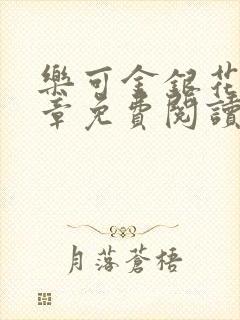 樂可金銀花
章免費閱讀
月落蒼梧